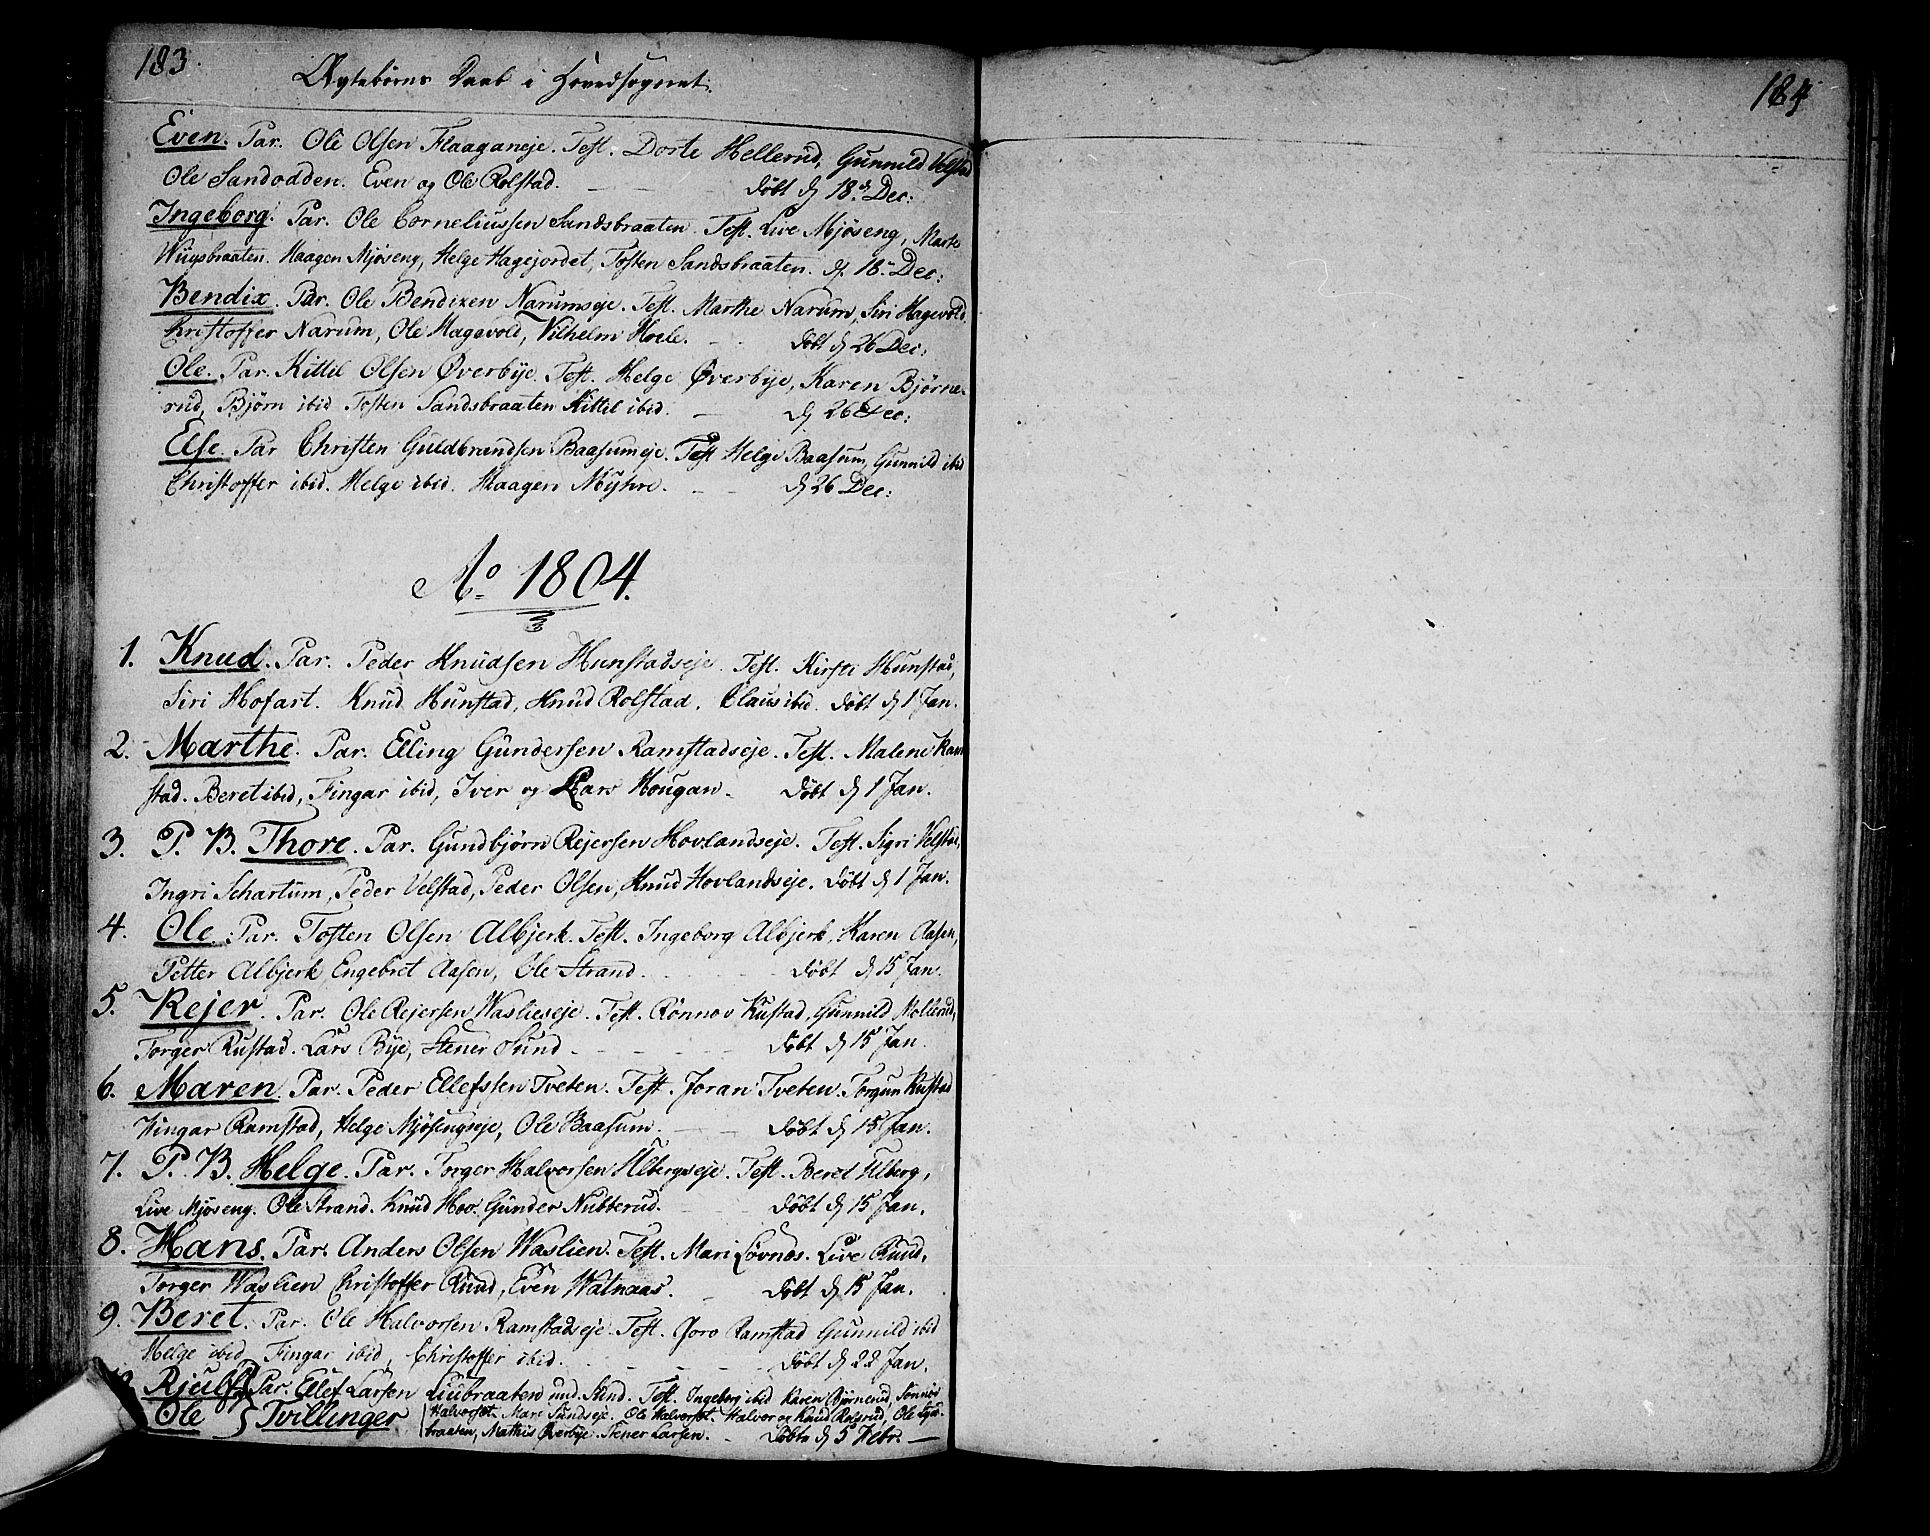 183.
Ægtebørns Daab i Hovedsognet.
184
Even. Par. Ole Olsen Flaaganeje. Test. Dorte Hellerud, Gunnild Velstad
Ole Sandodden. Even og Ole Rolstad. døbt d 18 Dec:
Ingeborg. Par. Ole Corneliussen Sandsbraaten. Test. Live Mjøseng, Marte
Wiigsbraaten. Haagen Mjøseng, Helge Hagejordet, Tosten Sandsbraaten. d. 18 Dec:
Bendix. Par. Ole Bendixen Narumseje. Test. Marthe Narum, Siri Hagevold.
Christoffer Narum, Ole Hagevold, Vilhelm Hoele. døbt d 26 Dec:
Ole. Par. Kittil Olsen Øverbye. Test. Helge Øverbye, Karen Bjørne-
rud, Bjørn ibid Tosten Sandsbraaten Kittil ibid. d 26 Dec:
Else. Par Christen Guldbrandsen Baasumeje. Test Helge Baasum, Gunnild ibid
Christoffer ibid. Helge ibid. Haagen Myhre. d 26 Dec:
Ao 1804.
1. Knud. Par. Peder Knudsen Hunstadseje. Test. Kirsti Hunstad,
Siri Hofart. Knud Hunstad, Knud Rolstad. Claus ibid. døbt d 1 Jan.
2. Marthe. Par. Elling Gundersen Ramstadseje. Test. Malene Ram
stad. Beret ibid, Fingar ibid, Iver og Lars Hougan. døbt d 1 Jan.
3. P. B. Thore. Par. Gundbjørn Rejersen Hovlandseje. Test. Sigri Velstad,
Ingri Schartum, Peder Velstad, Peder Olsen, Knud Hovlandseje. døbt d 1 Jan.
4. Ole. Par. Tosten Olsen Albjerk. Test. Ingeborg Albjerk, Karen Aasen,
Petter Albjerk, Engebret Aasen, Ole Strand. døbt d 15 Jan.
5. Rejer. Par. Ole Rejersen Waslieseje. Test. Rønnov Rustad, Gunnild Mollerud,
Torger Rustad. Lars Bye, Stener Sund. døbt d 15 Jan.
6. Maren. Par. Peder Ellefsten Tveten. Test. Joran Tveten. Torgun Rustad
Fingar Ramstad, Helge Mjøsengseje, Ole Baasum. døbt d 15 Jan.
7. P. B. Helge. Par. Torger Halvorsen Ulbergseje. Test. Beret Ulberg,
Live Mjøseng. Ole Strand. Knud Hov. Gunder Nubberud. døbt d 15 Jan.
8. Hans. Par. Anders Olsen Waslien. Test. Mari Løvnæs. Live Ruud,
Torger Waslien Christoffer Ruud, Even Watnaas. døbt d 15 Jan.
9. Beret. Par. Ole Halvorsen Ramstadseje. Test. Goro Ramstad Gunnild ibid
Helge ibid, Fingar ibid, Christoffer ibid. døbt d 22 Jan.
Rjulf Par. Ellef Larsen Liubraaten und. Sund. Test. Ingeborg ibid Karen Bjørnerud,
Ole } Tvillinger Halvorsdt. Mari Sundseje. Ole Halvorsøt. Halvor og Knud Rolsrud, Ole
braaten, Mathis Øverbye. Stener Larsen. døbte d 5 Febr.